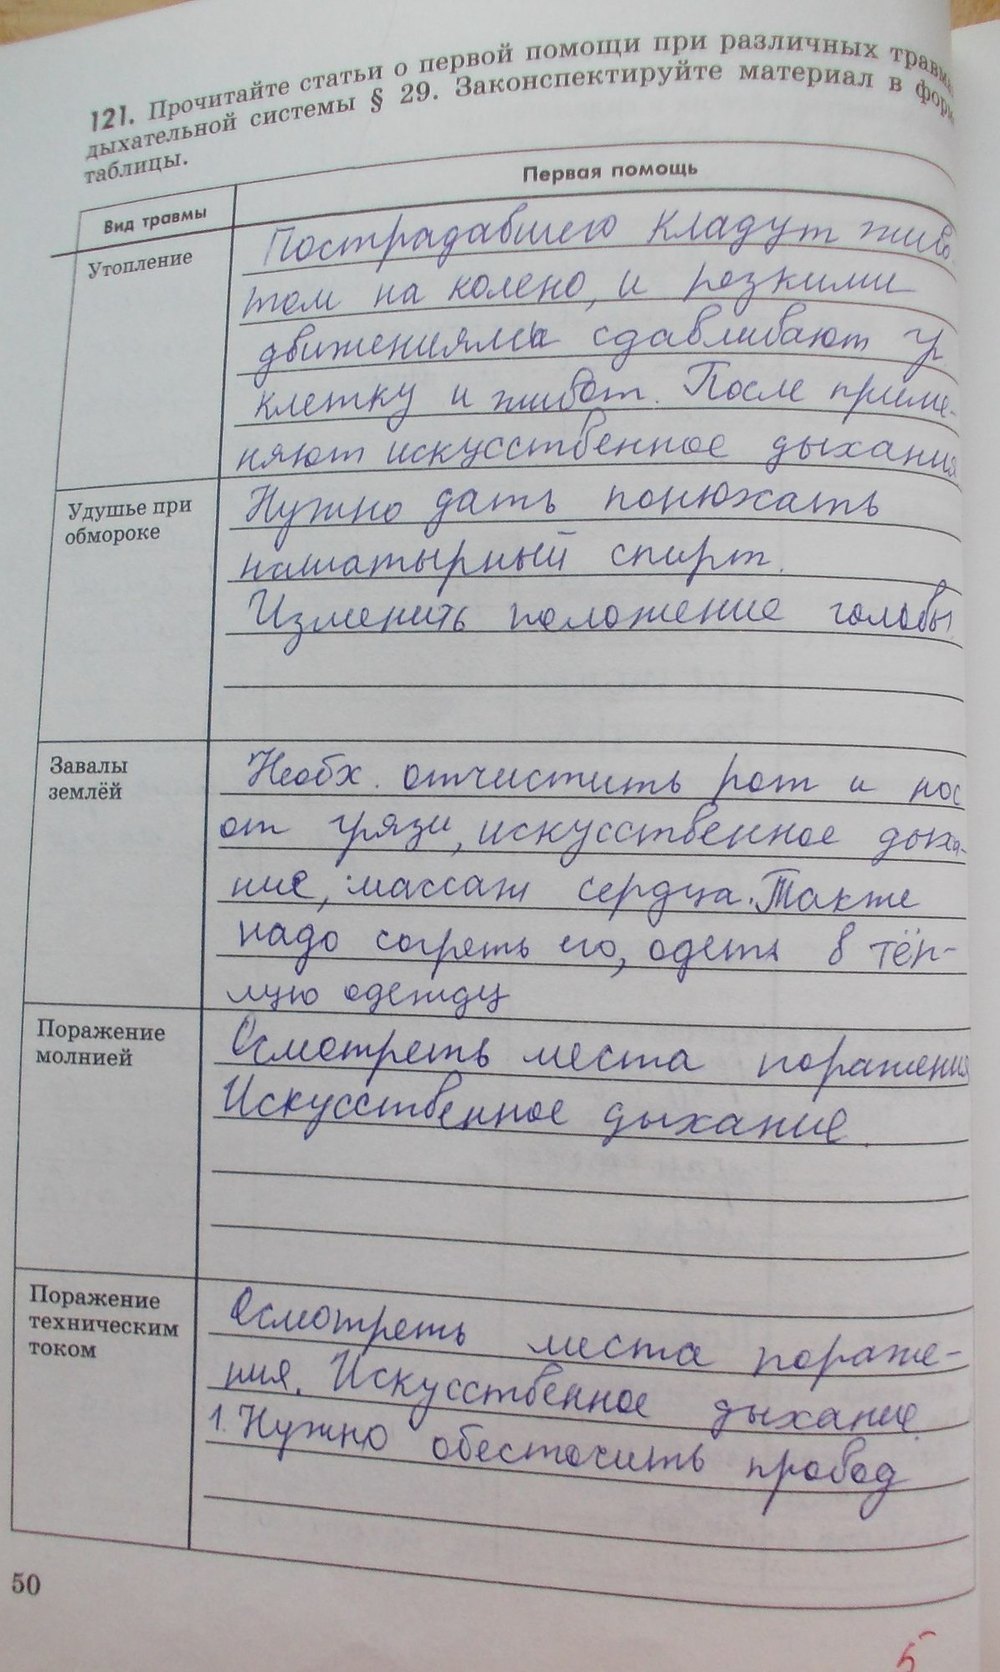 121. Прочитайте статьи о первой помощи при различных травма
дыхательной системы § 29. Законспектируйте материал в форм
таблицы.
Вид травмы
Первая помощь
Утопление
Пострадавшего кладут живо
том на колено, и резкими
движениями сдавливают гр
клетку и живот. После приме-
няют искусственное дыхания
Удушье при
обмороке
Нужно дать понюхать
нашатырный спирт.
Изменить положение головы
Завалы
землёй
Необх. отчистить рот и нос
от грязи, искусственное дыха-
ние, массаж сердца. Также
надо согреть его, одеть в тёп-
лую одежду
Поражение
молнией
Осмотреть места поражения
Искусственное дыхание.
Поражение
техническим
током
Осмотреть места пораже-
ния. Искусственное дыхание.
1. Нужно обесточить провод
50
5